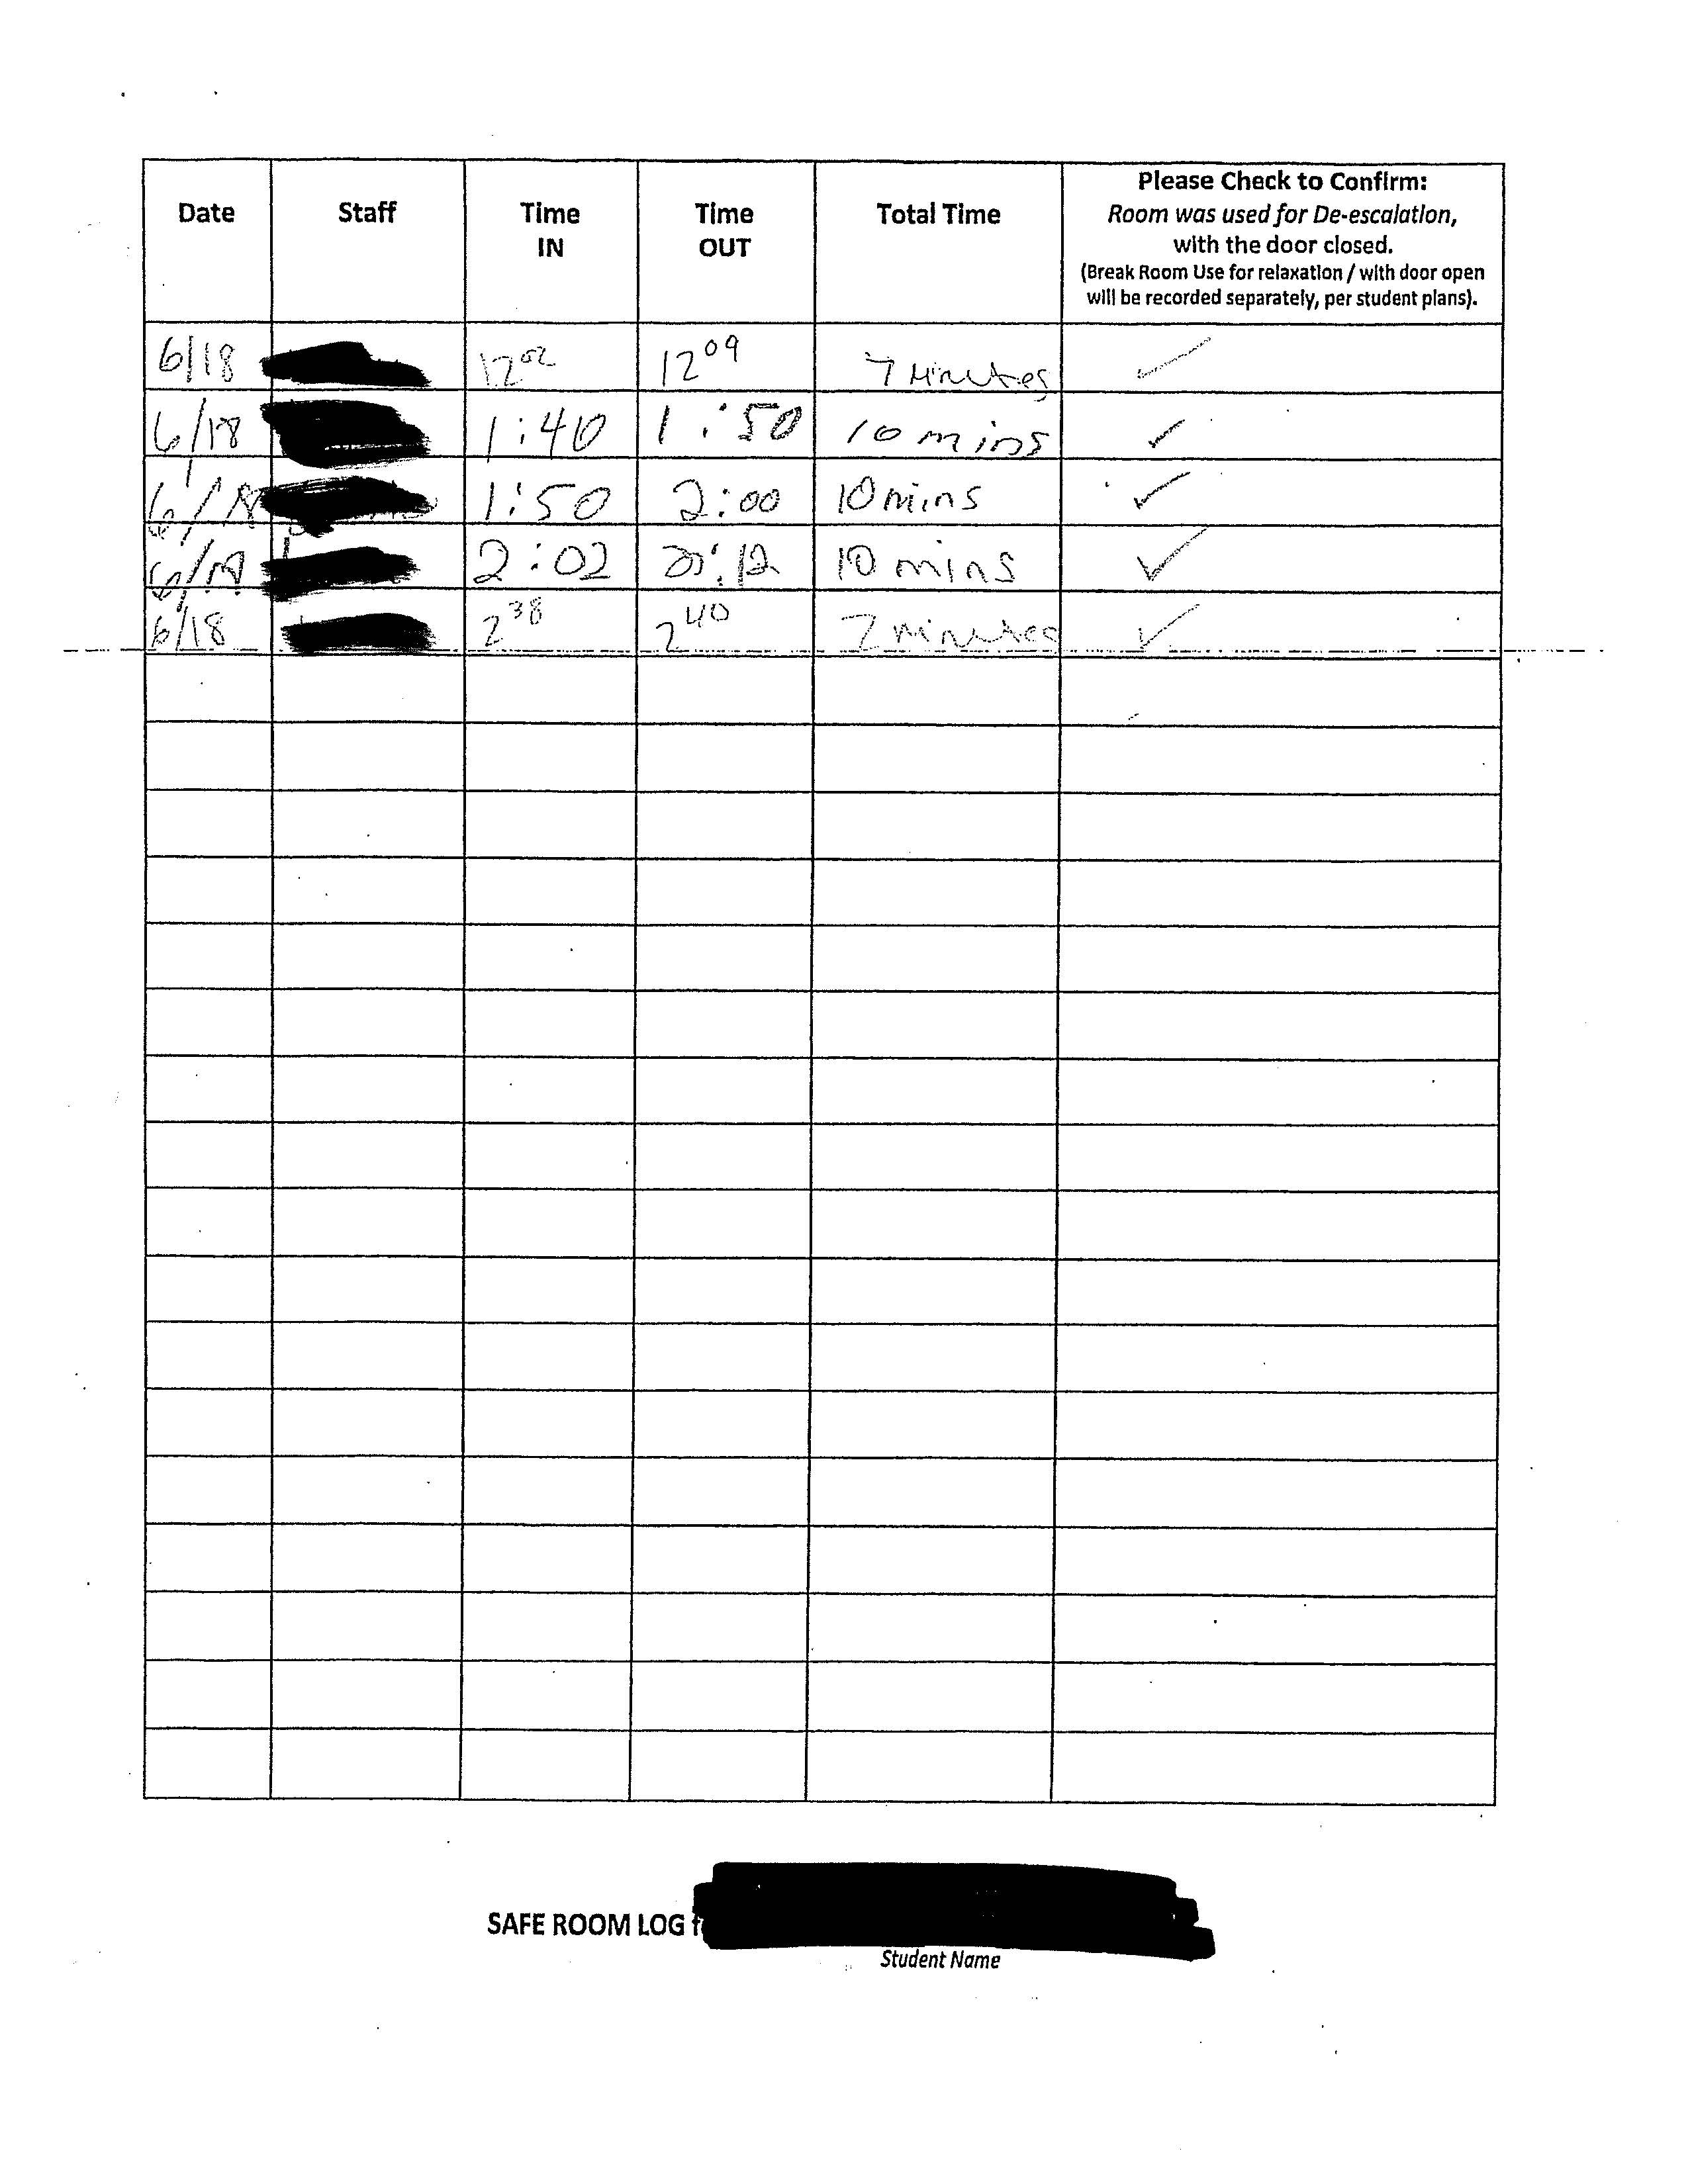 Date Staff Time IN Time OUT Total Time Please Check to Confirm:
Room was used for De-escalation,
with the door closed.
(Break Room Use for relaxation / with door open
will be recorded separately, per student plans).
6/18 12 02 12 09 7 Minutes ✓
6/18 1:40 1:50 10 mins ✓
6/18 1:50 2:00 10 mins ✓
6/18 2:02 2:12 10 mins ✓
6/18 2 38 2 40 2 minutes ✓
SAFE ROOM LOG
Student Name